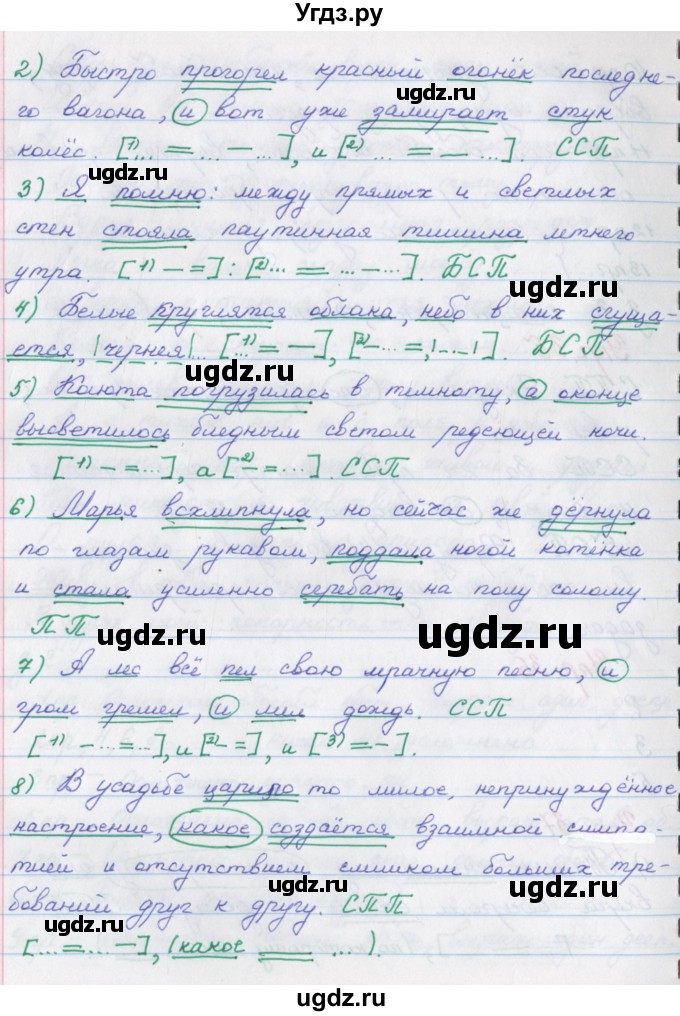 Угдз.ру
2) Быстро прогорел красный огонёк последне-
го вагона, и вот уже замирает стук
колёс. [1)... = ... – ...], и [2)... = – ...]. ССП
3) Я помню: между прямых и светлых
стен стояла паутинная тишина летнего
утра. [1) – =] : [2)... = ... – ...]. БСП
4) Белые круглятся облака, небо в них сгуща-
ется, |чернея|... [1)... = –], [2) – ... =, |–.–|]. БСП
5) Каюта погрузилась в темноту, а оконце
высветилось бледным светом редеющей ночи.
[1) – = ...], а [2) – = ...]. ССП
6) Марья всхлипнула, но сейчас же дёрнула
по глазам рукавом, поддала ногой котёнка
и стала усиленно серебать на полу солому.
ПП
7) А лес всё пел свою мрачную песню, и
гром гремел, и лил дождь. ССП
[1) – ... = ...], и [2) – =], и [3) = –].
8) В усадьбе царило то милое, непринуждённое
настроение, какое создаётся взаимной симпа-
тией и отсутствием слишком больших тре-
бований друг к другу. СПП
[... = ... –], (какое ... ).
ugdz.ru
ugdz.ru
ugdz.ru
ugdz.ru
ugdz.ru
ugdz.ru
ugdz.ru
ugdz.ru
ugdz.ru
ugdz.ru
ugdz.ru
ugdz.ru